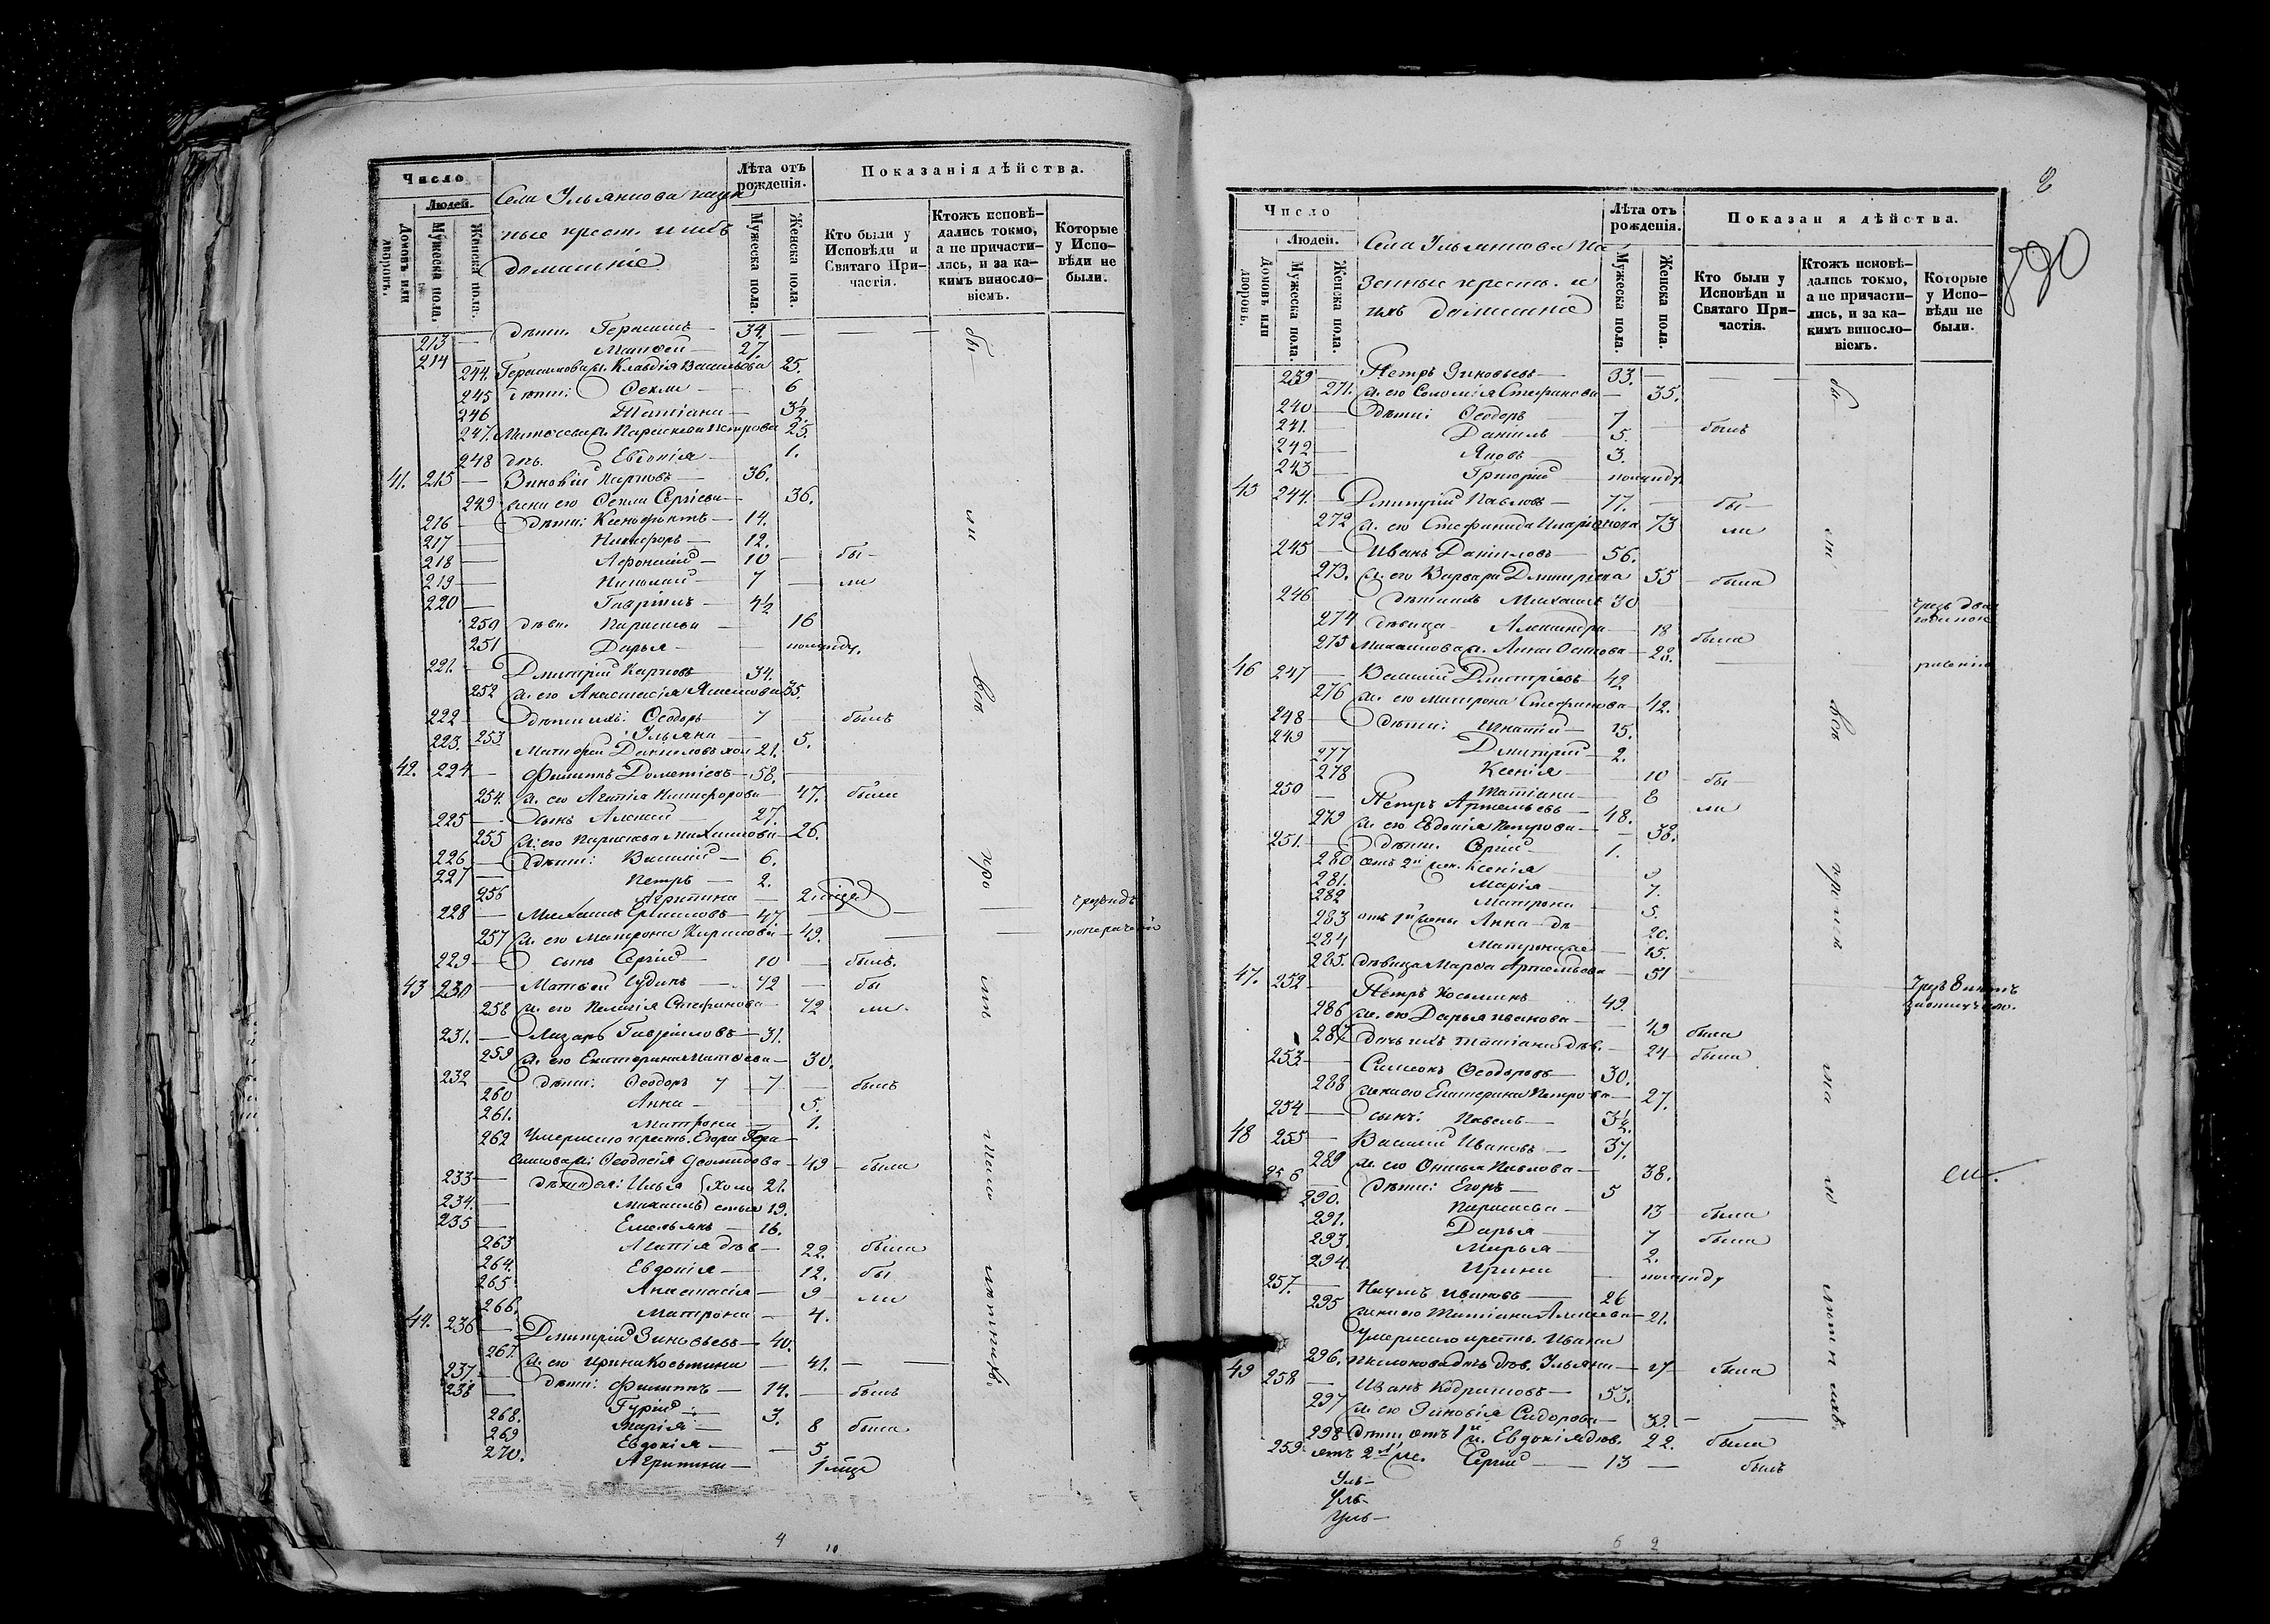 Число
Людей.
Домовъ или дворовъ.
Мужеска пола.
Женска пола.
Села Ульянкова казен
ные крест. и ихъ
домашніе
Лѣта отъ рожденія.
Мужеска пола.
Женска пола.
Показанія дѣйства.
Кто были у Исповѣди и Святаго Причастія.
Ктожъ исповѣдались токмо, а не причастились, и за какимъ винословіемъ.
Которые у Исповѣди не были.
213 — дѣти. Герасимъ — 34.
214 — Матвей — 27.
244. Герасимова ж. Клавдія Васильева 25.
245 дѣти: Ѳекла — 6
246 Татіана — 3½
247. Матвеева ж. Параскева Петрова 25.
248 дчь. Евдокія — 1.
41. 215 — Зиновій Карповъ — 36.
249 жена его Ѳекла Сергіева — 36.
216 — дѣти: Ксенофонтъ — 14.
217 — Никифоръ — 12.
218 — Афонасій — 10 — бы-
219 — Николай — 7 — ли
220 — Гавріилъ — 4½
250 дѣви. Параскева — 16
251 Дарья — полугоду.
221. — Дмитрій Карповъ — 34.
252 ж. его Анастасія 35.
222 — дѣти ихъ: Ѳеодоръ — 7 — былъ
253 Ульяна — 5.
223. — Матфей Даніиловъ хол 21.
42. 224 — Филиппъ Дометіевъ — 58.
254. ж. его Агапія Никифорова — 47. были
225 — сынъ Алексій — 27.
255 ж. его Параскева Михаилова — 26.
226 — дѣти: Василій — 6.
227 — Петръ — 2.
256 Агрипина — 2 мцев
228 — Михаилъ 47.
257 ж. его Матрона Кирилова — 49.
229 — сынъ Сергій — 10 — былъ.
43 230 — Матвей Іудинъ — 72 — бы
258 ж. его Пелагія Стефанова — 72 ли.
231. — Лазарь Гавріиловъ — 31.
259 ж. его Екатерина Матвеева — 30.
232 — дѣти: Ѳеодоръ 7 — 7 — былъ
260 Анна — 5.
261. Матрона — 1.
262 Умершаго крестъ. Егора Гера-
симова ж: Ѳеодосія 49 — была
233 — дѣти ея: Илья холо 21.
234. — Михаилъ стыя 19.
235 — Емельянъ — 16.
263 Агапія дѣв — 22. была
264. Евдокія — 12. бы
265 Анастасія — 9 — ли
266. Матрона — 4.
44. 236 — Дмитрій Зиновьевъ — 40.
267. ж. его Ирина Косьмина — 41. —
237. — дѣти: Филиппъ — 14. — былъ
238 — Гурій — 3.
268. Марія — 8 была
269 Евдокія — 5
270. Агрипина — 1 мцъ
бы
ли
всѣ
про
шлаго
лѣтнихъ.
4 10
2
890
Число
Людей.
Домовъ или дворовъ.
Мужеска пола.
Женска пола.
Села Ульянкова Ка
зенные крестъ. и
ихъ домашніе
Лѣта отъ рожденія.
Мужеска пола.
Женска пола.
Показан я дѣйства.
Кто были у Исповѣди и Святаго Причастія.
Ктожъ исповѣдались токмо, а не причастились, и за какимъ винословіемъ.
Которые у Исповѣди не были.
239 — Петръ Зиновьевъ — 33.
271. ж. его Соломія Стефанова — 35.
240 — дѣти: Ѳеодоръ — 7
241. — Даніилъ — 5. былъ
242 — Яковъ — 3.
243 — Григорій — полугоду.
45 244. — Дмитрій Павловъ — 77. — бы-
272 ж. его Стефанида Иларіонова 73 ли
245 — Иванъ Даніиловъ — 56.
273. ж. его Варвара Дмитріева 55 — была
246 дѣти ихъ Михаилъ 30
274 дѣвица Александра — 18 была
275 Михаилова ж. Анна 28.
46 247 — Василій Дмитріевъ — 42
276 ж. его Матрона Стефанова — 42.
248 — дѣти: Игнатій — 15.
249 — Дмитрій — 2.
277 Ксенія — 10 — бы-
278 Татіана — 8 ли
250 — Петръ Артемьевъ — 48.
279 ж. его Евдокія Петрова — 38.
251. — дѣти. Сергій — 1.
280 отъ 2й жен. Ксенія
281. Марія — 7.
282 Матрона 5.
283 отъ 1й жены Анна дѣ 20.
284 Матрона 15.
285. дѣвица Марѳа Артемьева — 51
47. 252 — Петръ Косьминъ 49.
286 ж. его Дарья Иванова — 49 была
287 дочь ихъ Татіана дѣв. — 24 — была
253 — Симеонъ Ѳеодоровъ — 30.
288 жена его Екатерина Петрова — 27.
254 — сынъ: Павелъ — 3½.
48 255 — Василій Ивановъ — 37.
289 ж. его Павлова — 38.
256 — дѣти: Егоръ — 5
290. Параскева — 13 — была
291. Дарья — 7 была
293. Марья — 2.
294. Ирина — полугоду
257. — Наумъ Ивановъ — 26
295 жена его Татіана Алексеева — 21.
Умершаго крестъ. Ивана
296. дчь дѣв. Ульяна — 17 — была
49 258 — Иванъ Кодратовъ — 53.
297 ж. его Зиновія Сидорова — 32. —
298 дѣти отъ 1й ж. Евдокія дѣв. 22. была
259 отъ 2й же. Сергій — 13 — былъ
Уль-
Уль-
Уль-
бы
ли
всѣ
6 2